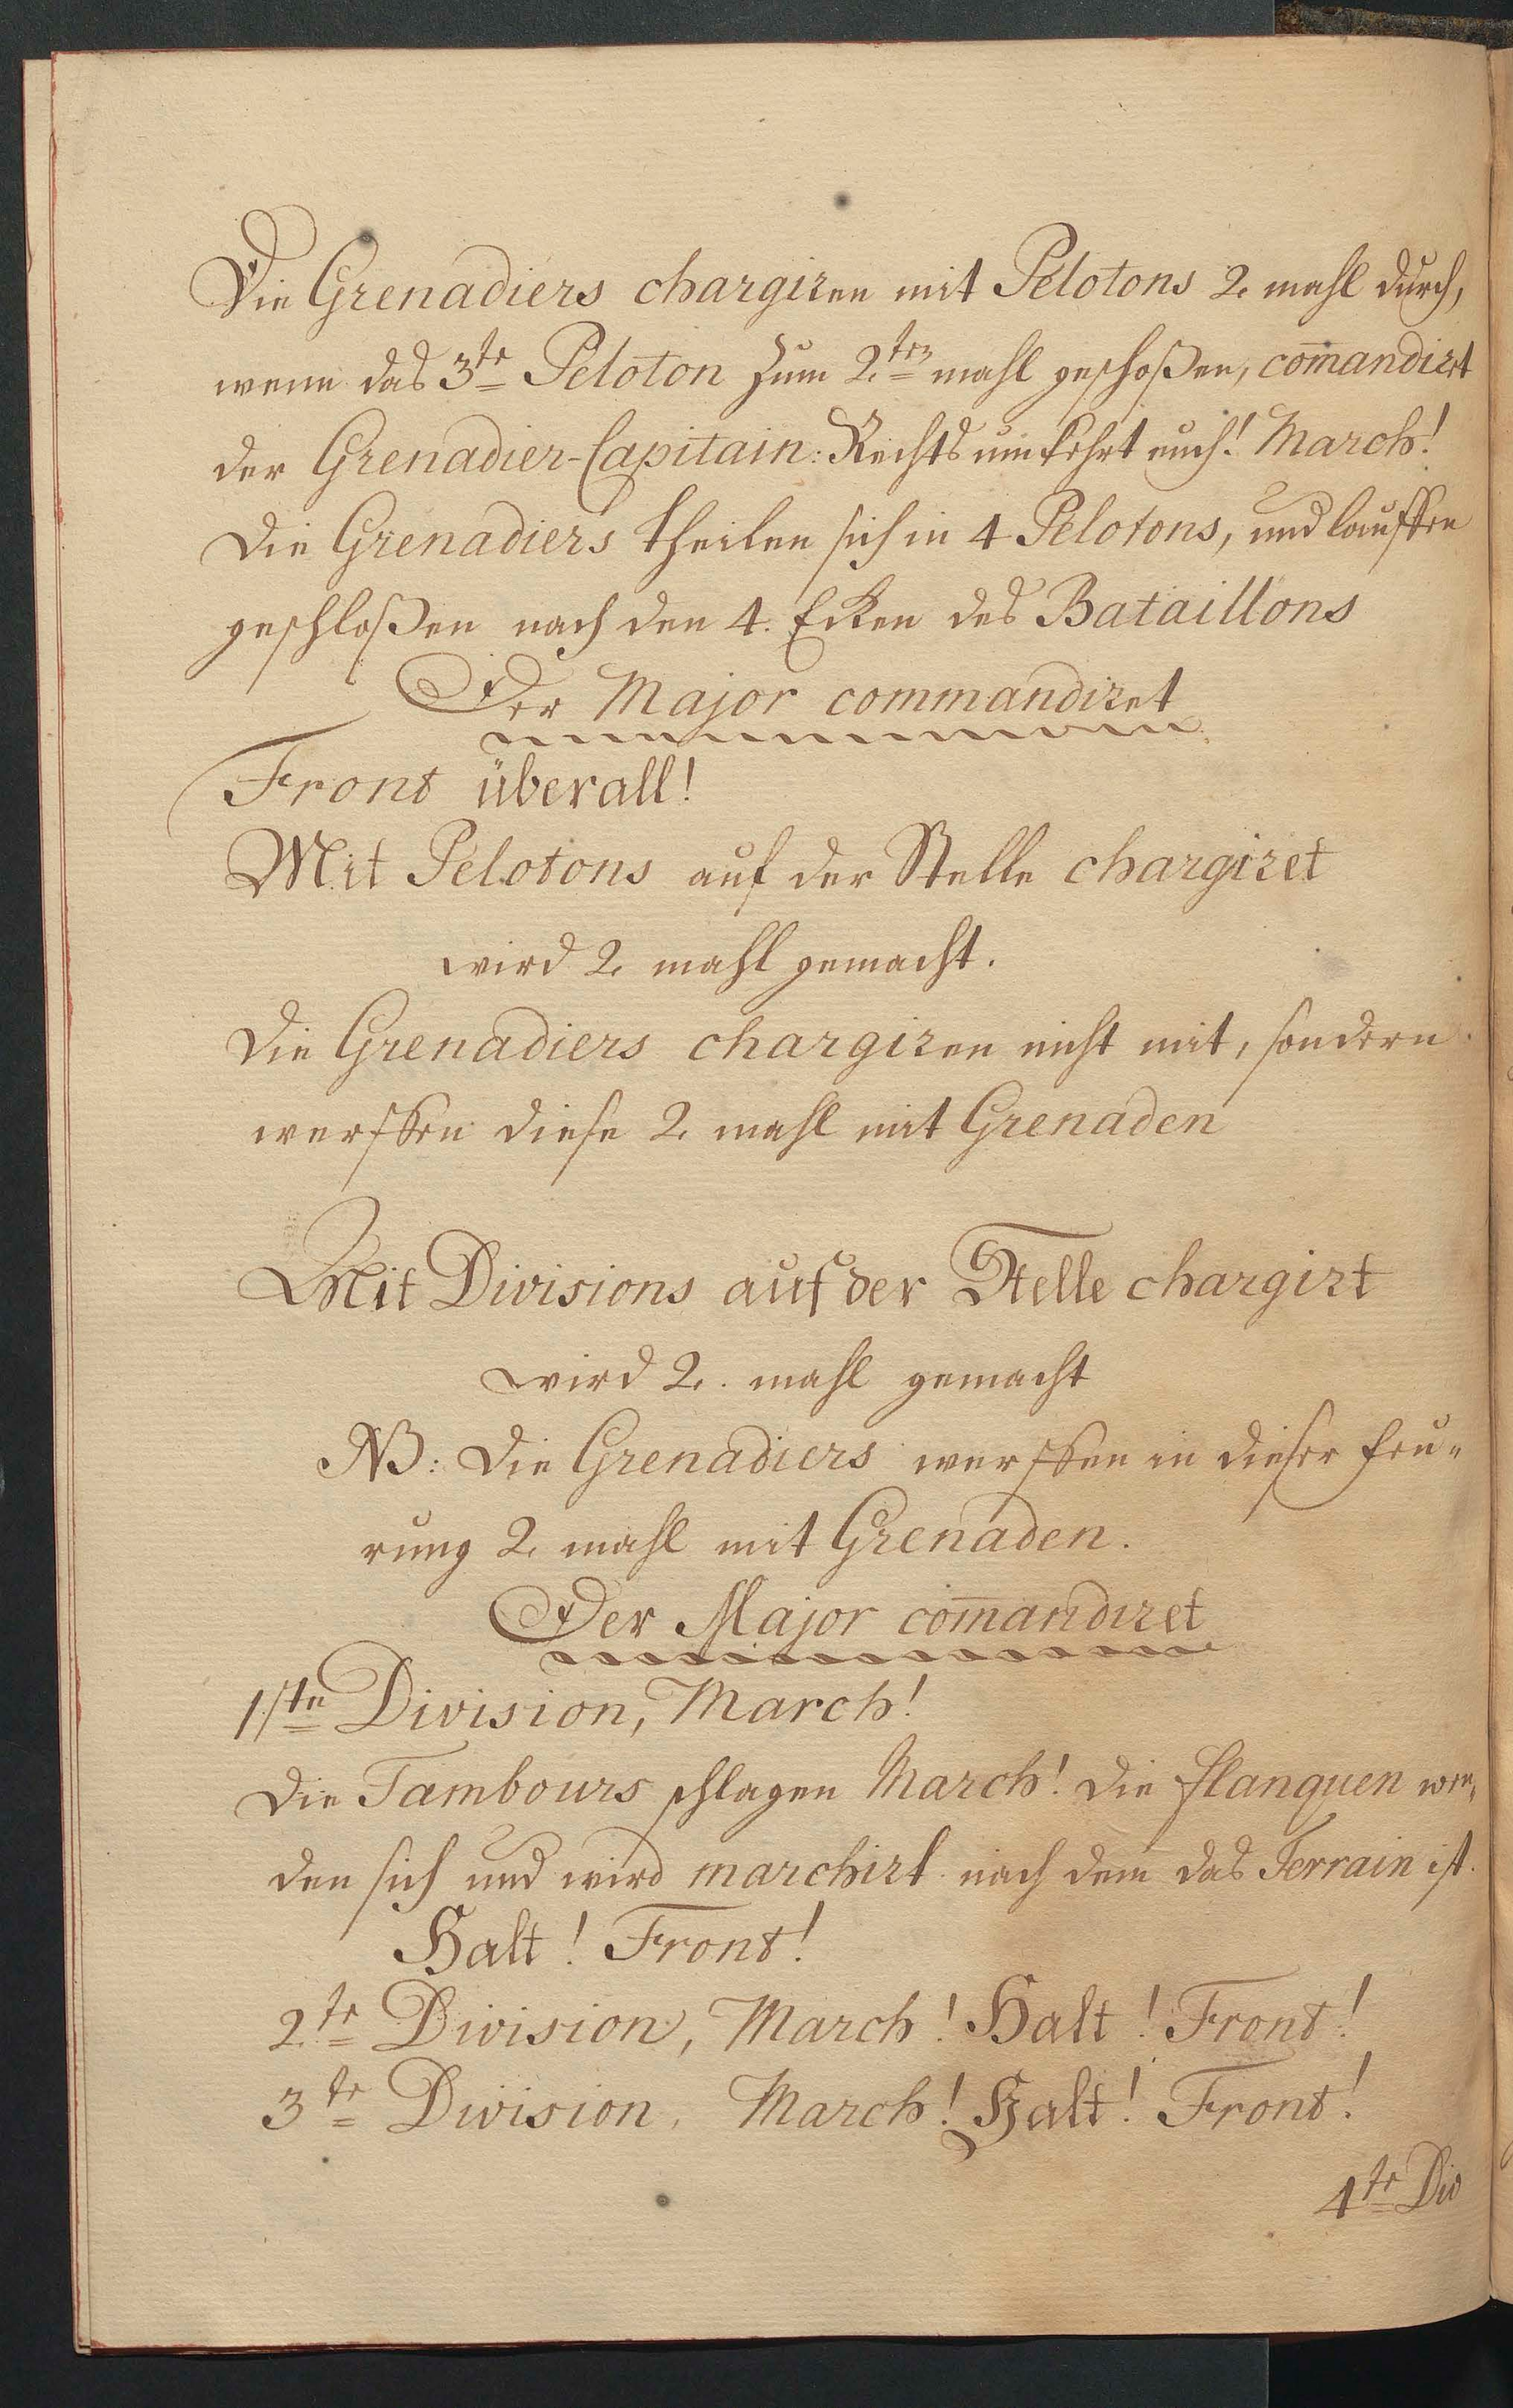 Die Grenadiers chargiren mit Pelotons 2. mahl durch,
wenn das 3te Peloton zum 2ten mahl geschoßen, com̄andirt
der Grenadier-Capitain: Rechts um kehrt euch! March!
Die Grenadiers theilen sich in 4 Pelotons, und lauffen
geschloßen nach den 4. Ecken des Bataillons
Der Major commandiret
Front überall!
Mit Pelotons auf der Stelle chargiret
wird 2. mahl gemacht.
Die Grenadiers chargiren nicht mit, sondern
werffen diese 2. mahl mit Grenaden
Mit Divisions auf der Stelle chargirt
wird 2. mahl gemacht
NB: Die Grenadiers werffen in dieser feu-
rung 2. mahl mit Grenaden.
Der Major com̄andiret
1ste Division, March!
Die Tambours schlagen March! Die flanquen wen-
den sich und wird marchirt nach dem das Terrain ist.
Halt! Front!
2te Division, March! Halt! Front!
3te Division, March! Halt! Front!
4te Div